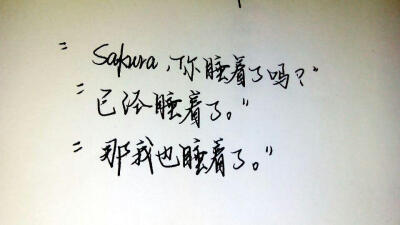 "Sakura,你睡着了吗?"
"已经睡着了。"
"那我也睡着了。"